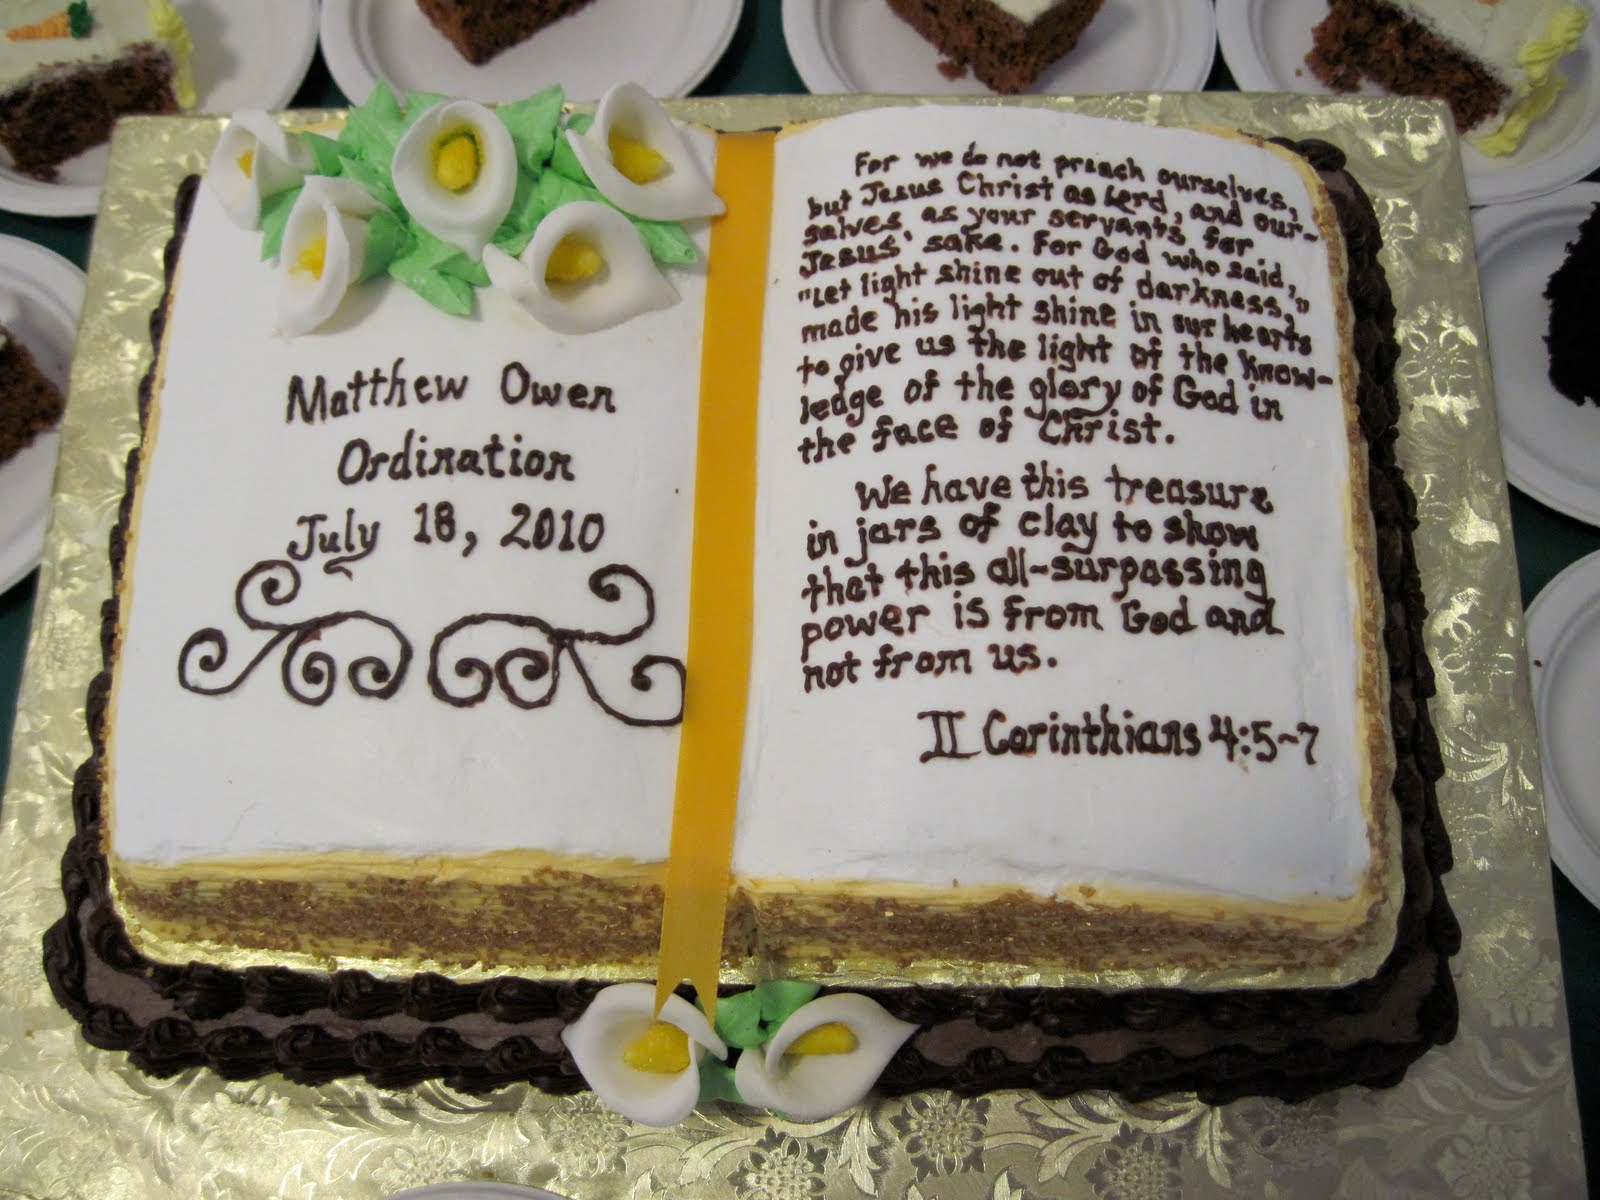 Matthew Owen
Ordination
July 18, 2010
For we do not preach ourselves,
but Jesus Christ as Lord, and our-
selves as your servants for
Jesus' sake. For God who said,
"Let light shine out of darkness,"
made his light shine in our hearts
to give us the light of the know-
ledge of the glory of God in
the face of Christ.
We have this treasure
in jars of clay to show
that this all-surpassing
power is from God and
not from us.
II Corinthians 4:5-7